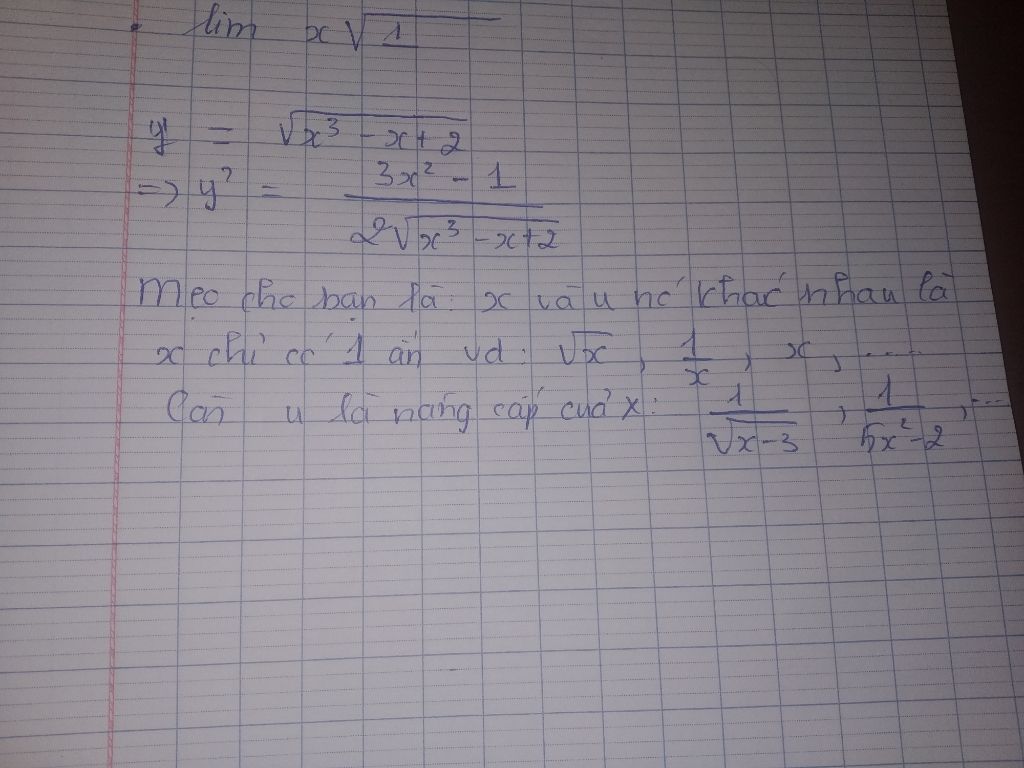 • lim x√1
y = √x³ - x + 2
=> y' = 3x² - 1 / 2√x³ - x + 2
Mẹo cho bạn là: x và u nó khác nhau là
x chỉ có 1 ẩn vd: √x, 1/x, x, .....
Còn u là nâng cấp của x: 1/√x-3, 1/5x²-2, ...